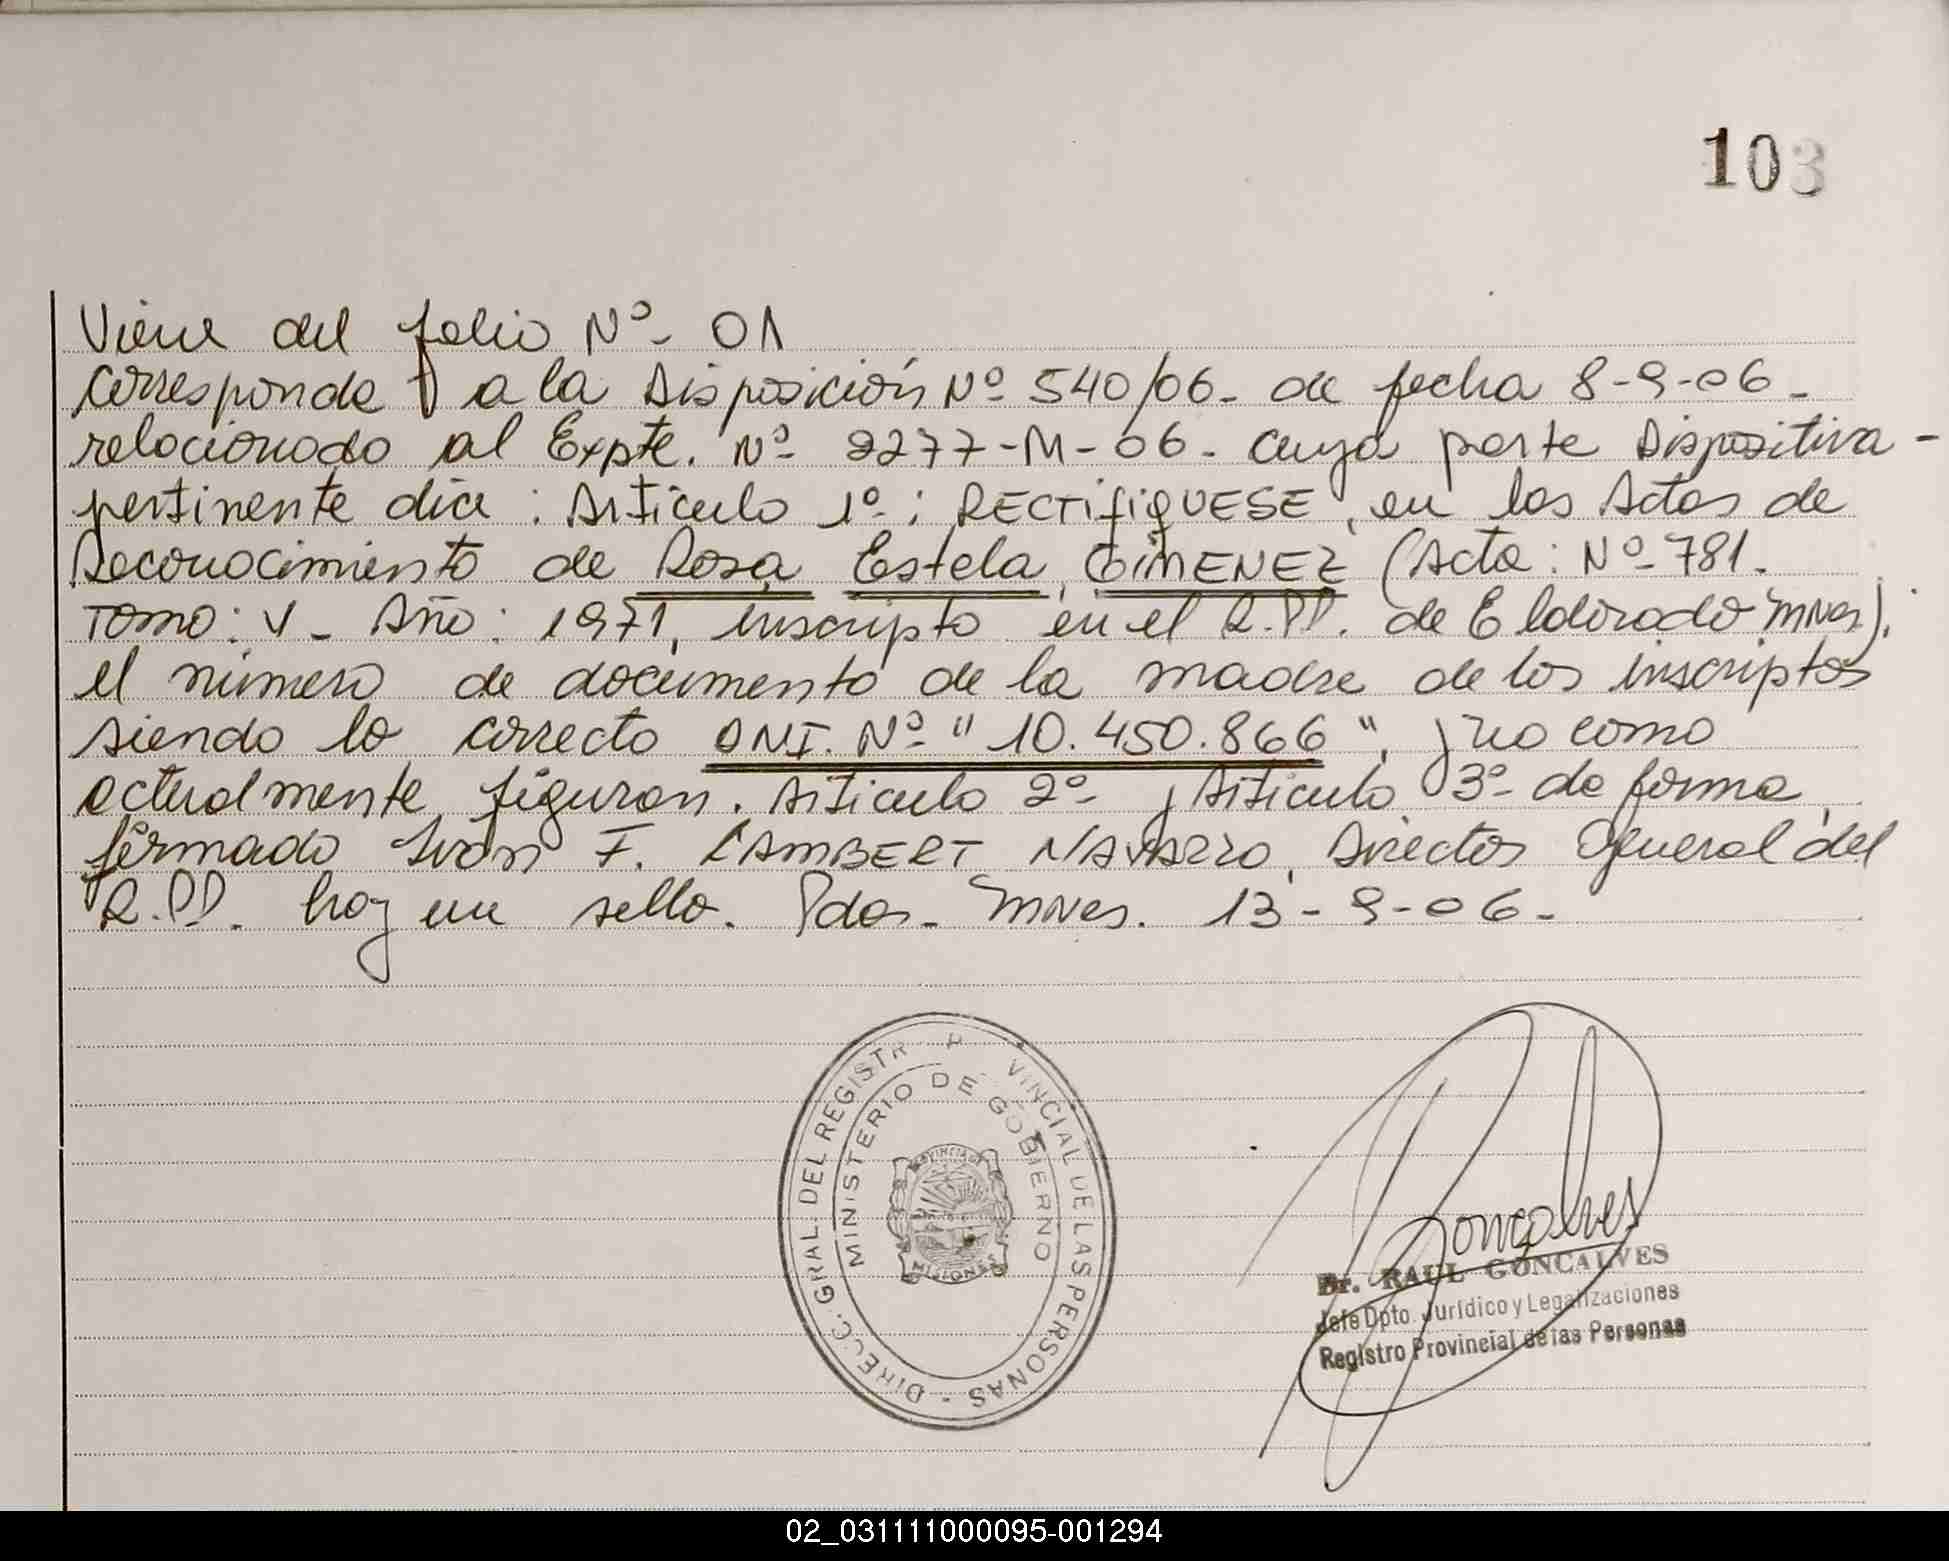 103
Viene del folio Nº- 01
corresponde a la Disposición Nº 540/06- de fecha 8-9-06-
relacionado al Expte. Nº 2277-M-06- cuya parte Dispositiva-
pertinente dice: Artículo 1º-: RECTIFIQUESE, en las Actas de
Reconocimiento de Rosa Estela, GIMENEZ (Acta: Nº 781.
Tomo: V- Año: 1971, inscripto en el R.PP. de Eldorado Mnes);
el número de documento de la madre de los inscriptos
siendo lo correcto DNI. Nº "10.450.866", y no como
actualmente figuran. Artículo 2º- y Artículo 3º- de forma,
firmado Iván F. LAMBERT NAVARRO, Director General del
R.PP. hay un sello. Pdas- Mnes. 13-9-06-
DIRECC. GRAL. DEL REGISTR P VINCIAL DE LAS PERSONAS -
MINISTERIO DE GOBIERNO
PROVINCIA DE
MISIONES
Goncalves
Dr. RAUL GONCALVES
Jefe Dpto. Jurídico y Legalizaciones
Registro Provincial de las Personas
02_031111000095-001294